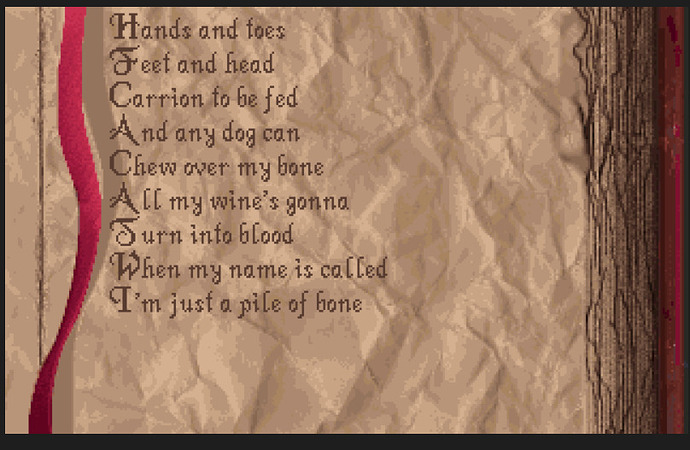 Hands and toes
Feet and head
Carrion to be fed
And any dog can
Chew over my bone
All my wine's gonna
Turn into blood
When my name is called
I'm just a pile of bone